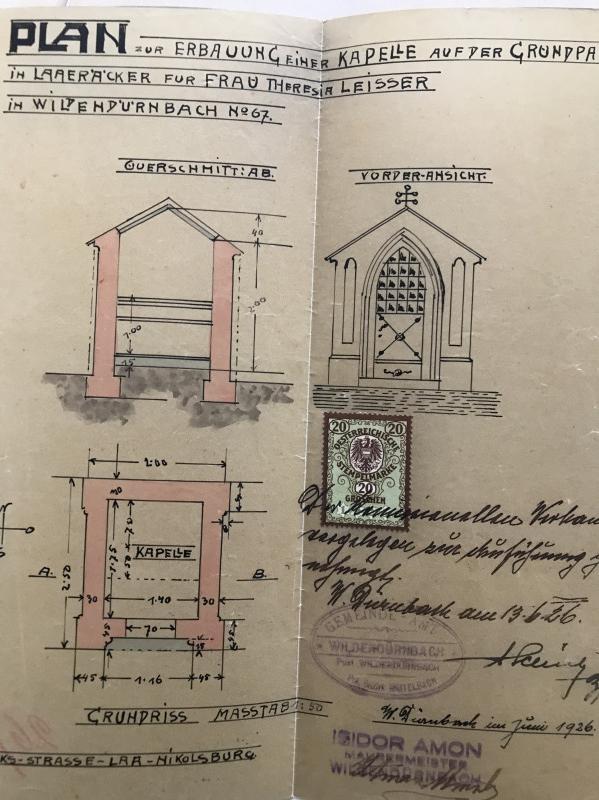 PLAN ZUR ERBAUUNG EINER KAPELLE AUF DER GRUNDPA
IN LAAERÄCKER FÜR FRAU THERESIA LEISSER
IN WILDENDÜRNBACH No 67.
QUERSCHNITT: AB.
VORDER-ANSICHT.
40
2·00
1·00
15
20 20
OESTERREICHISCHE
STEMPELMARKE
20
GROSCHEN
2·00
30
KAPELLE
A. B.
2·52
30 1·40 30
70
15
45 1·16 45
GRUNDRISS MASSTAB 1:50
KS-STRASSE-LAA-NIKOLSBURG
vorgelegen zur Ausführung
W. Dürnbach am 13.6.26.
GEMEINDE-AMT
WILDENDÜRNBACH
Post WILDENDÜRNBACH
W. Dürnbach im Juni 1926.
ISIDOR AMON
MAURERMEISTER
WILDENDÜRNBACH